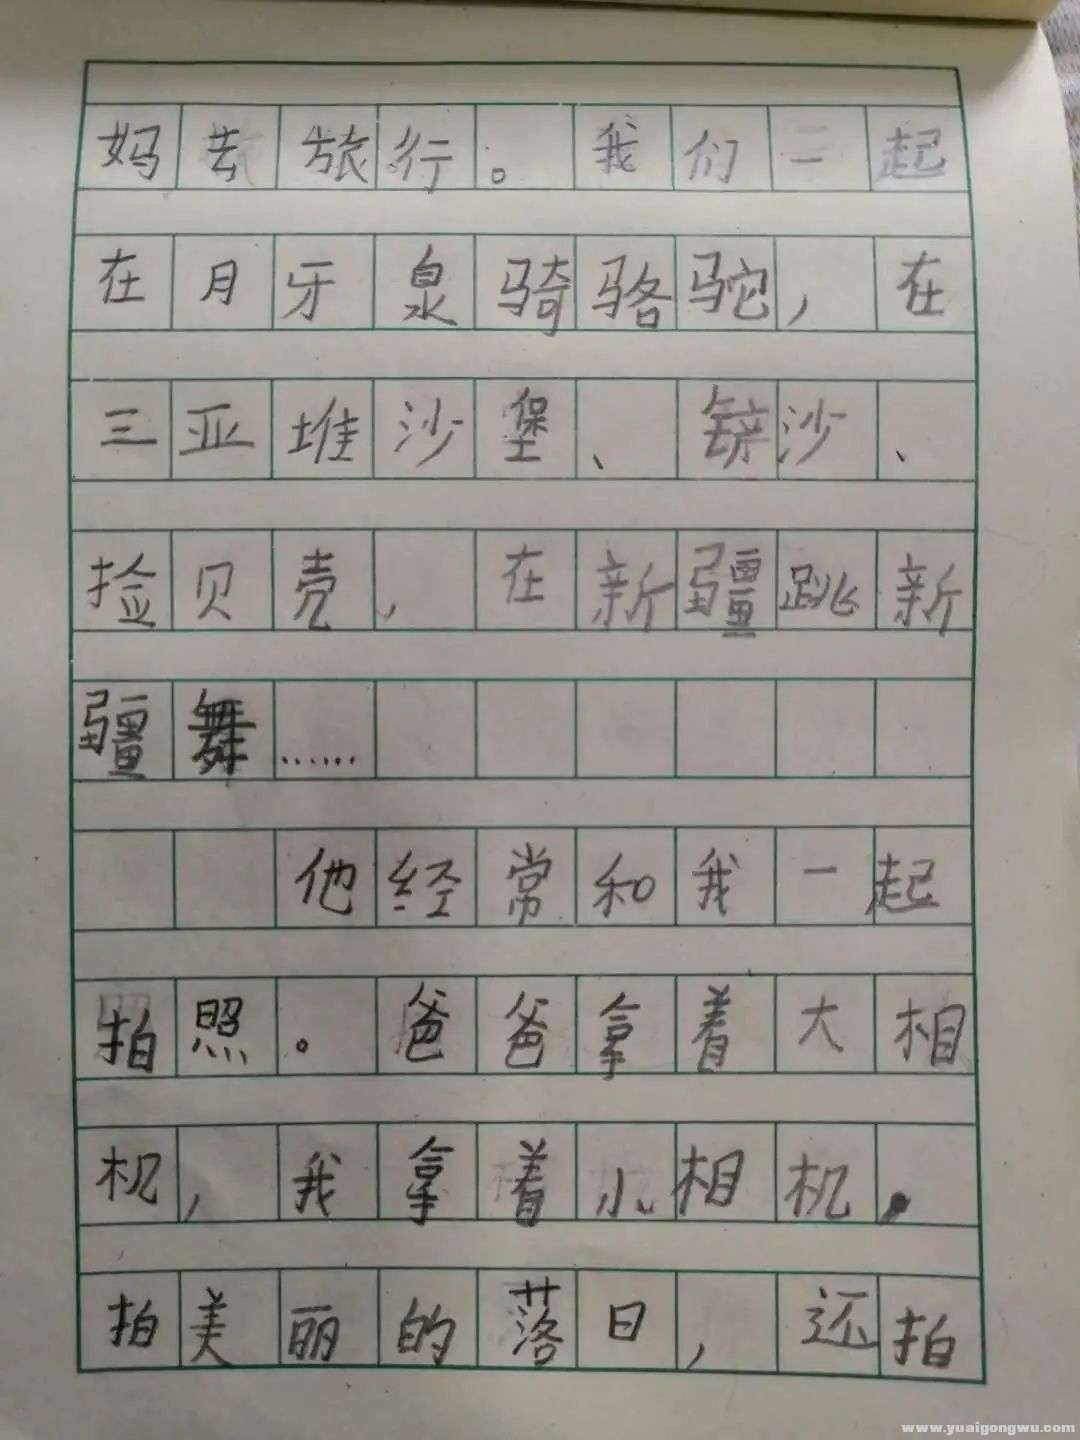 妈去旅行。我们一起
在月牙泉骑骆驼,在
三亚堆沙堡、铲沙、
捡贝壳,在新疆跳新
疆舞……
他经常和我一起
拍照。爸爸拿着大相
机,我拿着小相机,
拍美丽的落日,还拍
www.yuaigongwu.com